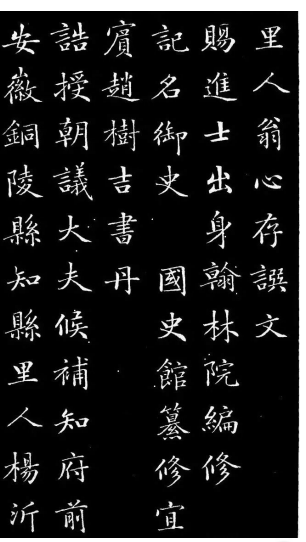 里人翁心存譔文
賜進士出身翰林院編修
記名御史 國史館纂修宜
賓趙樹吉書丹
誥授朝議大夫候補知府前
安徽銅陵縣知縣里人楊沂